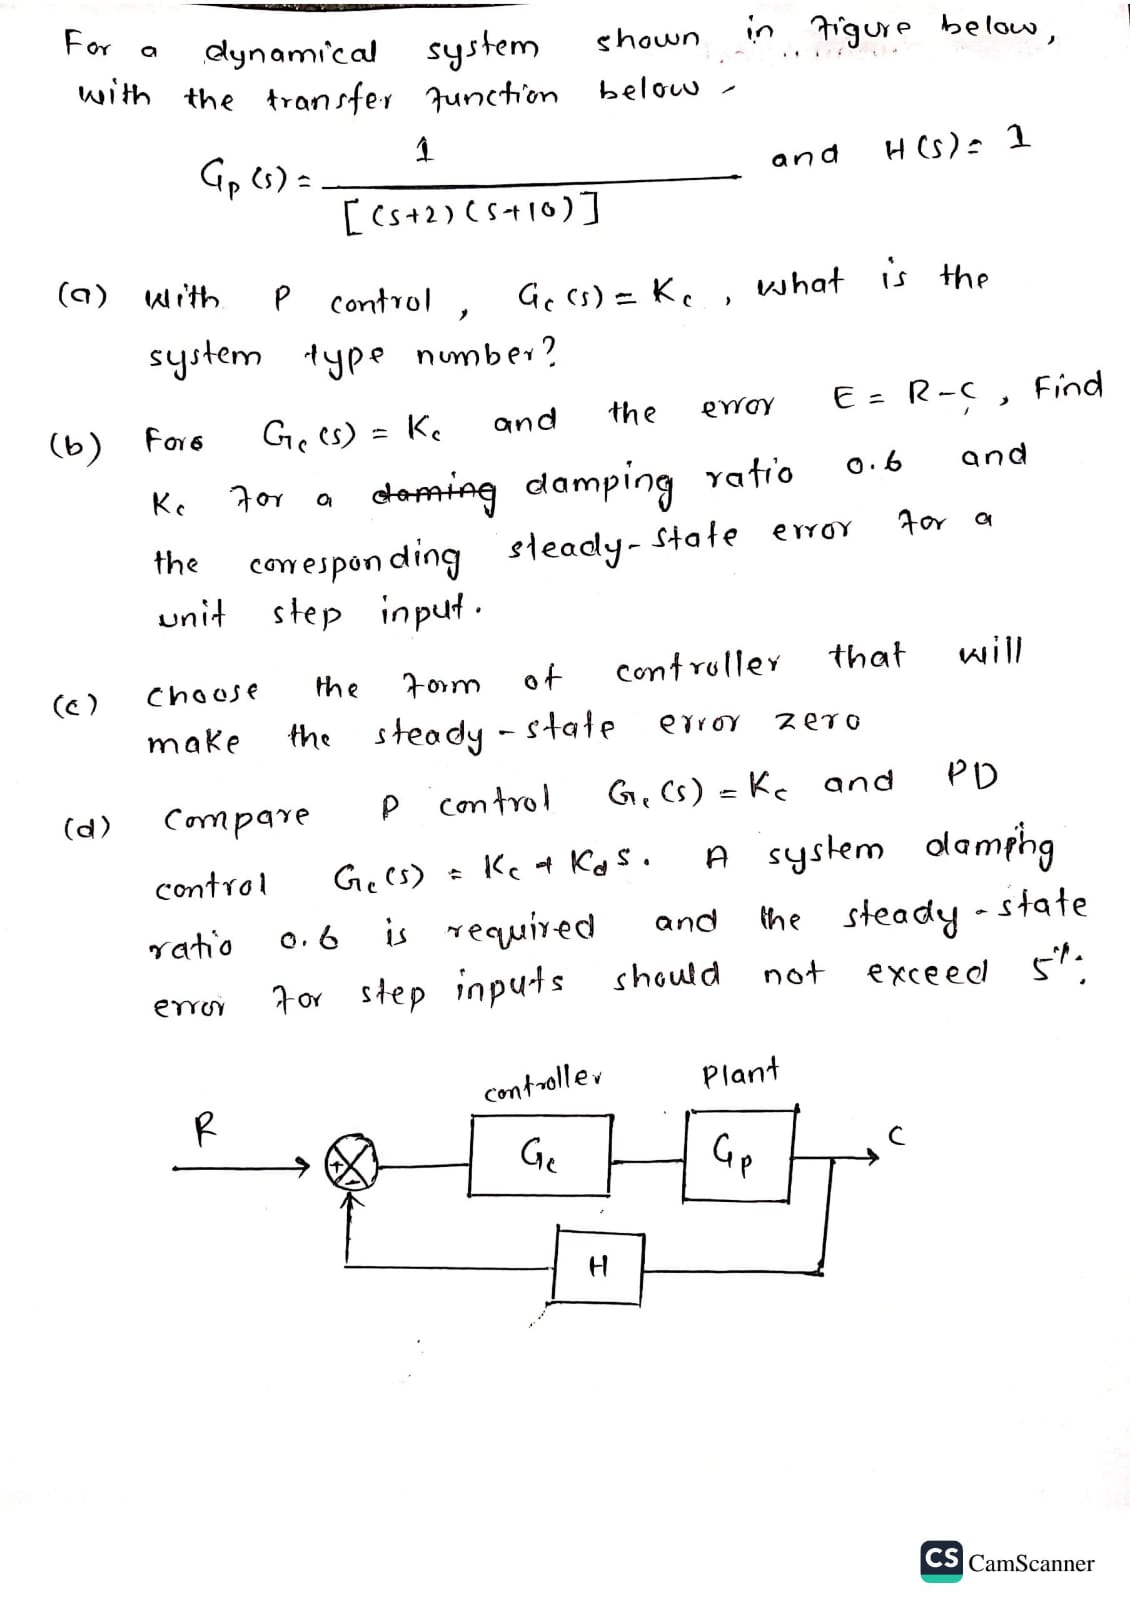 For a dynamical system shown in figure below,
with the transfer function below -
Gp(s) = 1 / [(s+2)(s+10)] and H(s) = 1
(a) with P control, Gc(s) = Kc, what is the
system type number?
(b) Fors Gc(s) = Kc and the error E = R-C, Find
Kc for a daming damping ratio 0.6 and
the corresponding steady-state error for a
unit step input.
(c) choose the form of controller that will
make the steady-state error zero
(d) Compare P control Gc(s) = Kc and PD
control Gc(s) = Kc + Kds. A system damping
ratio 0.6 is required and the steady-state
error for step inputs should not exceed 5%.
controller Plant
R Gc Gp C
+ -
H
CS CamScanner